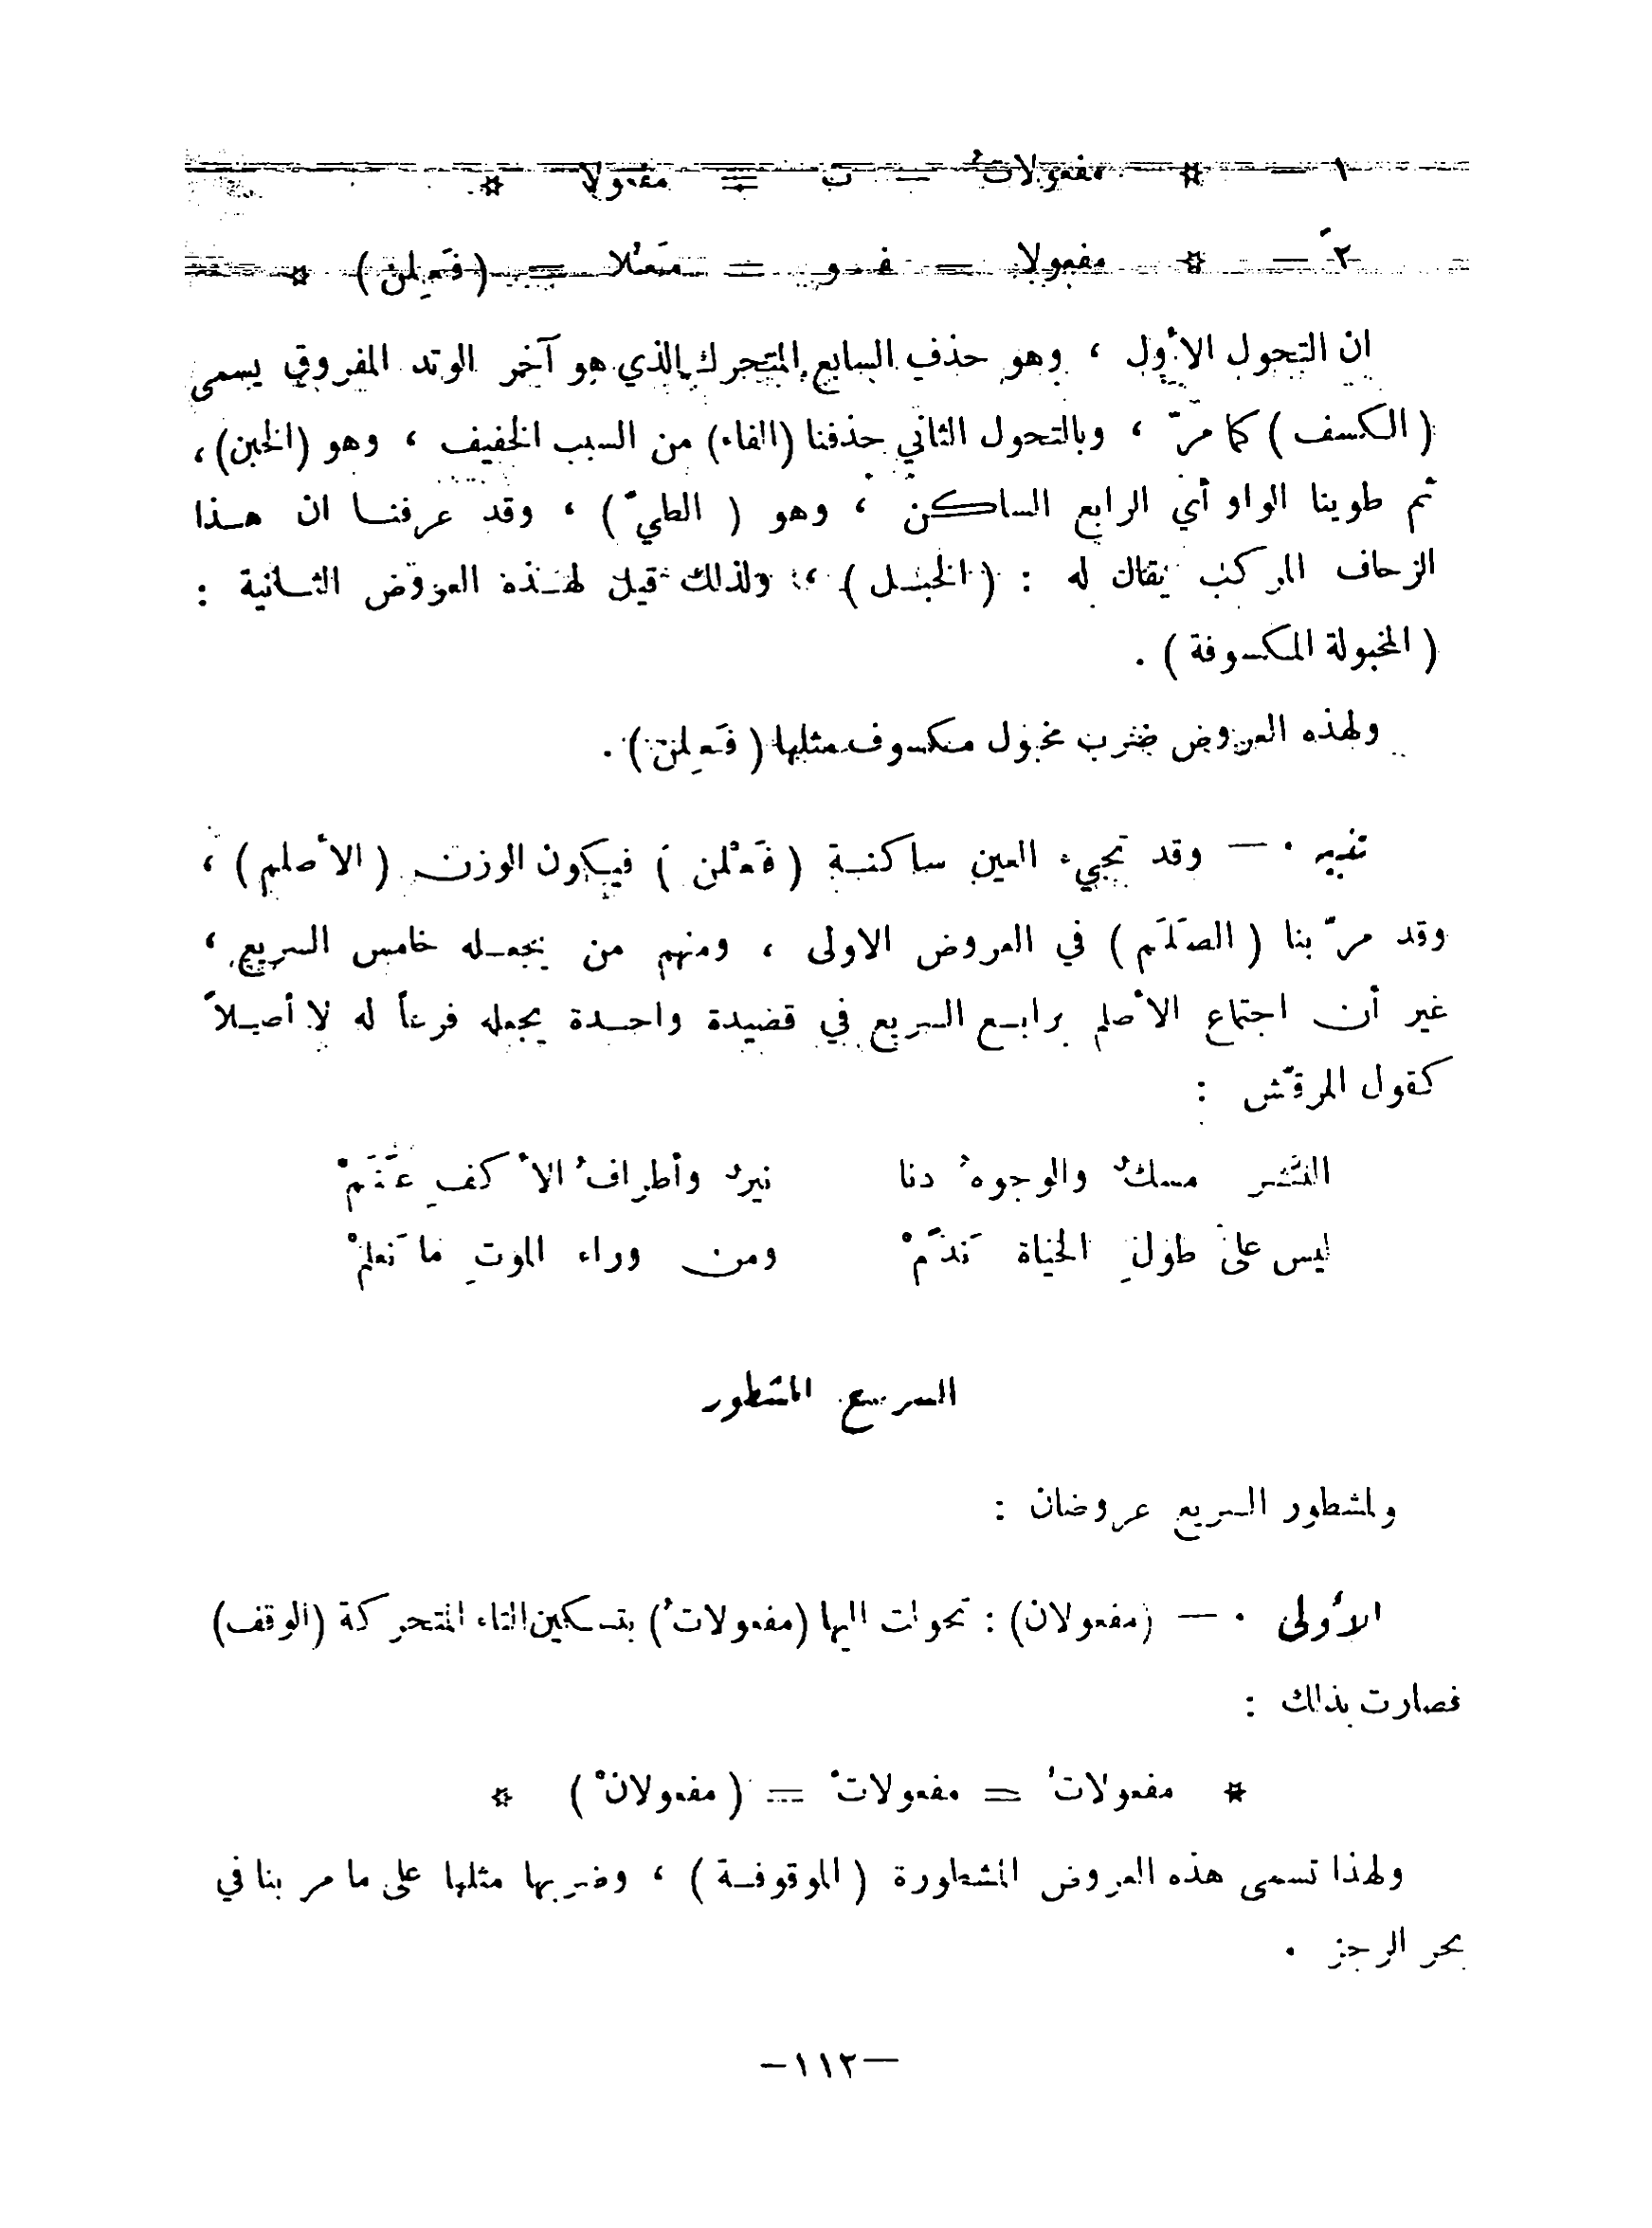 ١ — * مفعولاتُ — ت = مفعولا *
٢ً — * مفعولا — ف و = مَعُلا = (فَعِلن) *
ان التحول الأول ، وهو حذف السابع المتحرك الذي هو آخر الوتد المفروق يسمى
( الكسف ) كما مرّ ، وبالتحول الثاني حذفنا (الفاء) من السبب الخفيف ، وهو (الخبن)،
ثم طوينا الواو أي الرابع الساكن ، وهو ( الطيّ ) ، وقد عرفنـا ان هـذا
الزحاف المركب يقال له : ( الخبـل ) ، ولذلك قيل لهـذه العروض الثـانية :
( المخبولة المكسوفة ) .
ولهذه العروض ضرب مخبول مكسوف مثلها ( فَعِلن ) .
تنبيه . — وقد تجيء العين ساكنـة ( فَعْلن ) فيكون الوزن ( الأصلم ) ،
وقد مرّ بنا ( الصَلَم ) في العروض الاولى ، ومنهم من يجعـله خامس السريع ،
غير أن اجتماع الأصلم برابـع السريع في قصيدة واحـدة يجعله فرعاً له لا أصيـلاً
كقول المرقّش :
النَّشر مسكٌ والوجوهُ دنا نيرٌ وأطرافُ الأكفِ عَنَمْ
ليس على طولِ الحياة نَدَمْ ومن وراء الموتِ ما نَعلمْ
السريع المشطور
ولمشطور السريع عروضان :
الأولى . — (مفعولان) : تحولت اليها (مفعولاتُ) بتسكين التاء المتحركة (الوقف)
فصارت بذلك :
* مفعولاتُ = مفعولاتْ = ( مفعولانْ ) *
ولهذا تسمى هذه العروض المشطورة ( الموقوفـة ) ، وضربها مثلها على ما مر بنا في
بحر الرجز .
—١١٢—